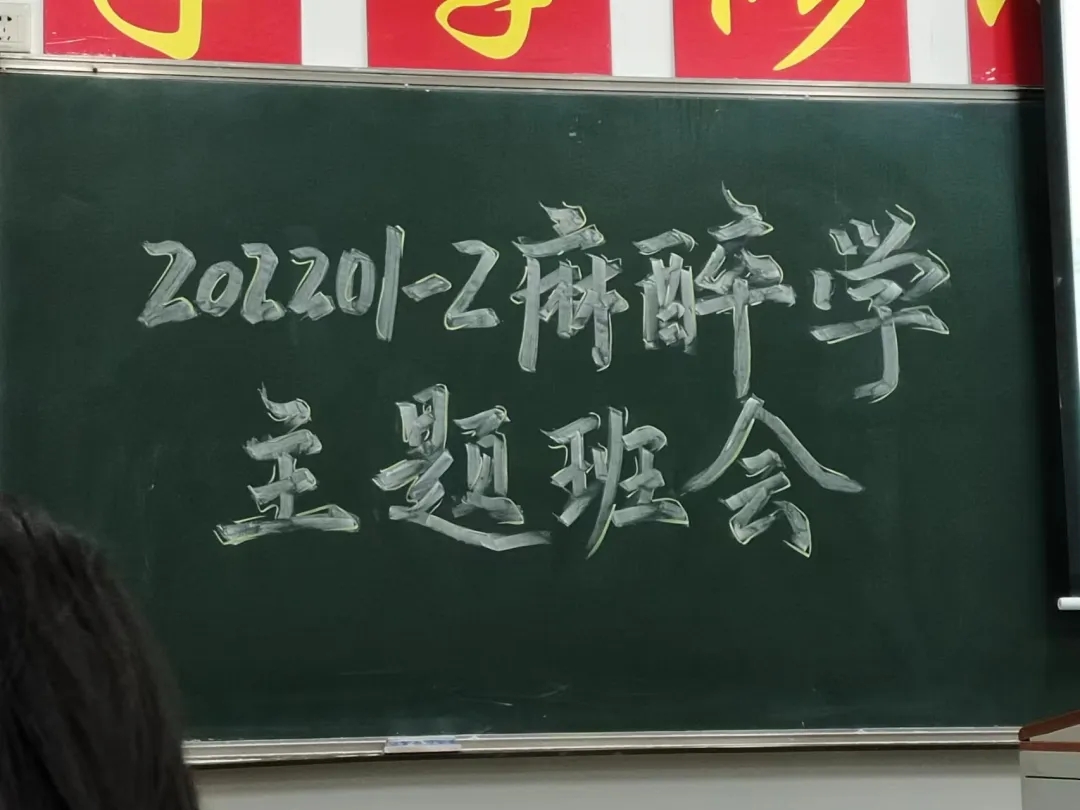 202201-2麻醉学
主题班会